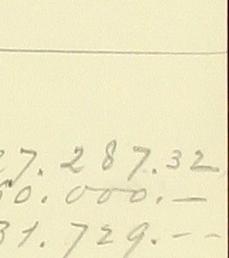 27.287.32
50.000.—
31.729.--